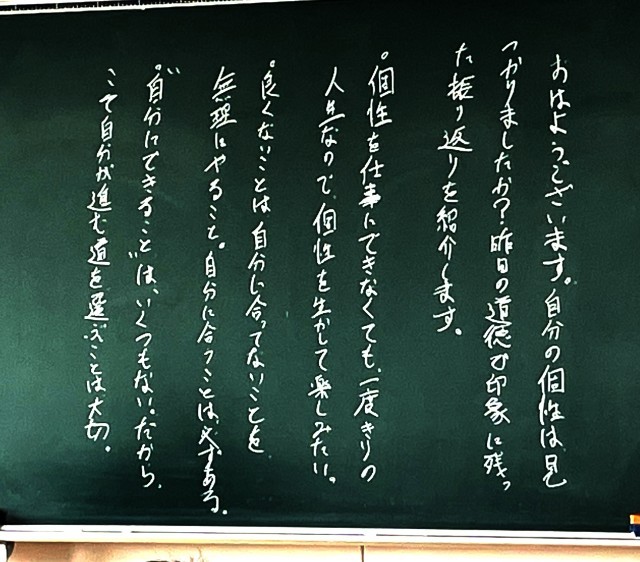 おはようございます。自分の個性は見
つかりましたか？昨日の道徳で印象に残っ
た振り返りを紹介します。
。個性を仕事にできなくても、一度きりの
人生なので、個性を生かして楽しみたい。
。良くないことは自分に合ってないことを
無理にやること。自分に合うことは、必ずある。
。"自分にできること"は、いくつもない。だから、
こで自分が進む道を選ぶことは大切。